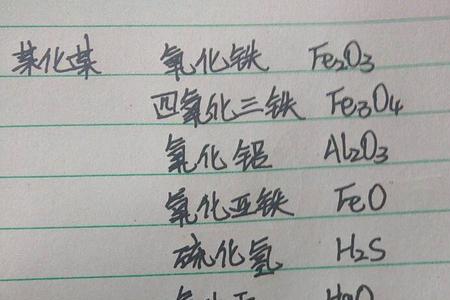 某化某 氧化铁 Fe₂O₃
四氧化三铁 Fe₃O₄
氧化铝 Al₂O₃
氧化亚铁 FeO
硫化氢 H₂S